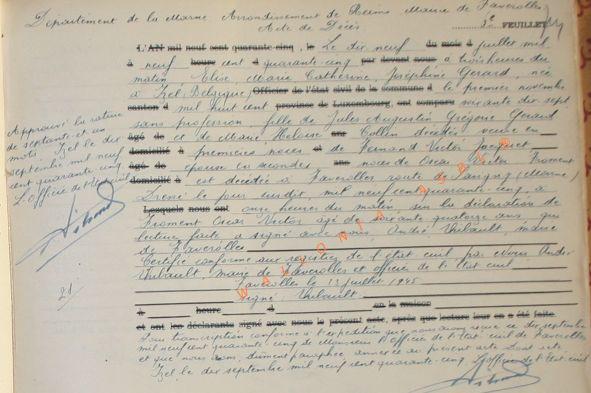 Département de la Marne Arrondissement de Reims Mairie de Faverolles
Acte de Décès
3e FEUILLET
L'AN mil neuf cent quarante cinq, le Le dix neuf du mois d juillet mil
à neuf heure cent d quarante cinq par devant nous à trois heures du
matin, Elise Marie Catherine Joséphine Gerard, née
à Izel Belgique Officier de l'état civil de la commune d le premier novembre
canton d mil huit cent province de Luxembourg, ont comparu soixante dix sept
sans profession fille de Jules Augustin Grégoire Gerard
âgé de et de Marie Héloïse ans Collin décédés veuve en
domicilié à premières noces de Fernand Victor
âgé de épouse en secondes ans noces de Oscar Victor Froment
domicilié à est décédée à Faverolles route de Savigny (Marne)
Dressé le pour jeudit, mil neuf cent quarante-cinq, à
Lesquels nous ont onze heures du matin, sur la déclaration de
Froment Oscar Victor âgé de soixante quatorze ans, qui
lecture faite a signé avec nous, André Thibault, maire
de Faverolles
Certifié conforme aux registres de l'état civil par Nous André
Thibault, maire de Faverolles et officier de l'état civil
Faverolles le 13 juillet 1945
signé: Thibault
à heure d en la maison
et ont les déclarants signé avec nous le présent acte, après que lecture leur en a été faite.
Pour transcription conforme à l'expédition que nous avons reçue le dix septembre
mil neuf cent quarante-cinq de Monsieur l'officier de l'état civil de Faverolles
et que nous avons, dûment paraphée annexée au présent acte dont acte
Izel le dix septembre mil neuf cent quarante-cinq L'officier de l'état civil
Approuvé la rature
de septante et un
mots Izel le dix
septembre mil neuf
cent quarante cinq
L'officier de l'état civil
21